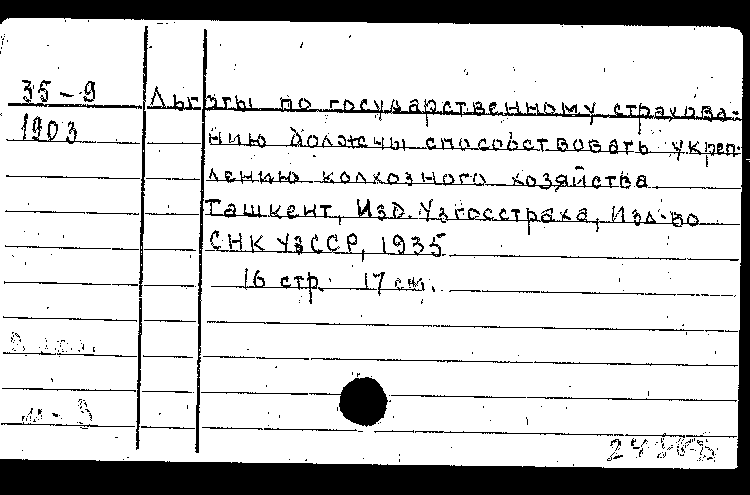 35-9
1903
Льготы по государственному страхова-
нию должны способствовать укреп-
лению колхозного хозяйства
Ташкент, Изд. Узгосстраха, Изд-во
СНК УзССР, 1935
16 стр. 17 см.